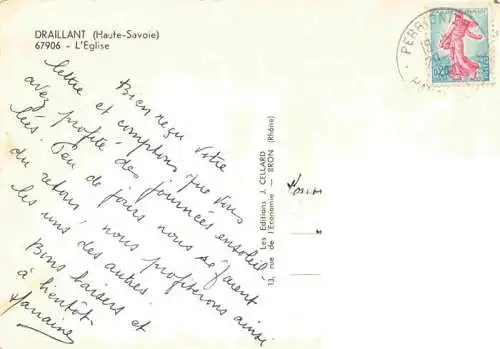 DRAILLANT (Haute-Savoie)
67906 - L'Eglise
Bien reçu votre
lettre et comptons que vous
avez profité des journées ensoleil-
lées. Peu de jours nous séparent
du retour, nous profiterons ainsi
les uns des autres.
Bons baisers et
à bientôt
Les Editions J. CELLARD
13, rue de l'Economie — BRON (Rhône)
0,20